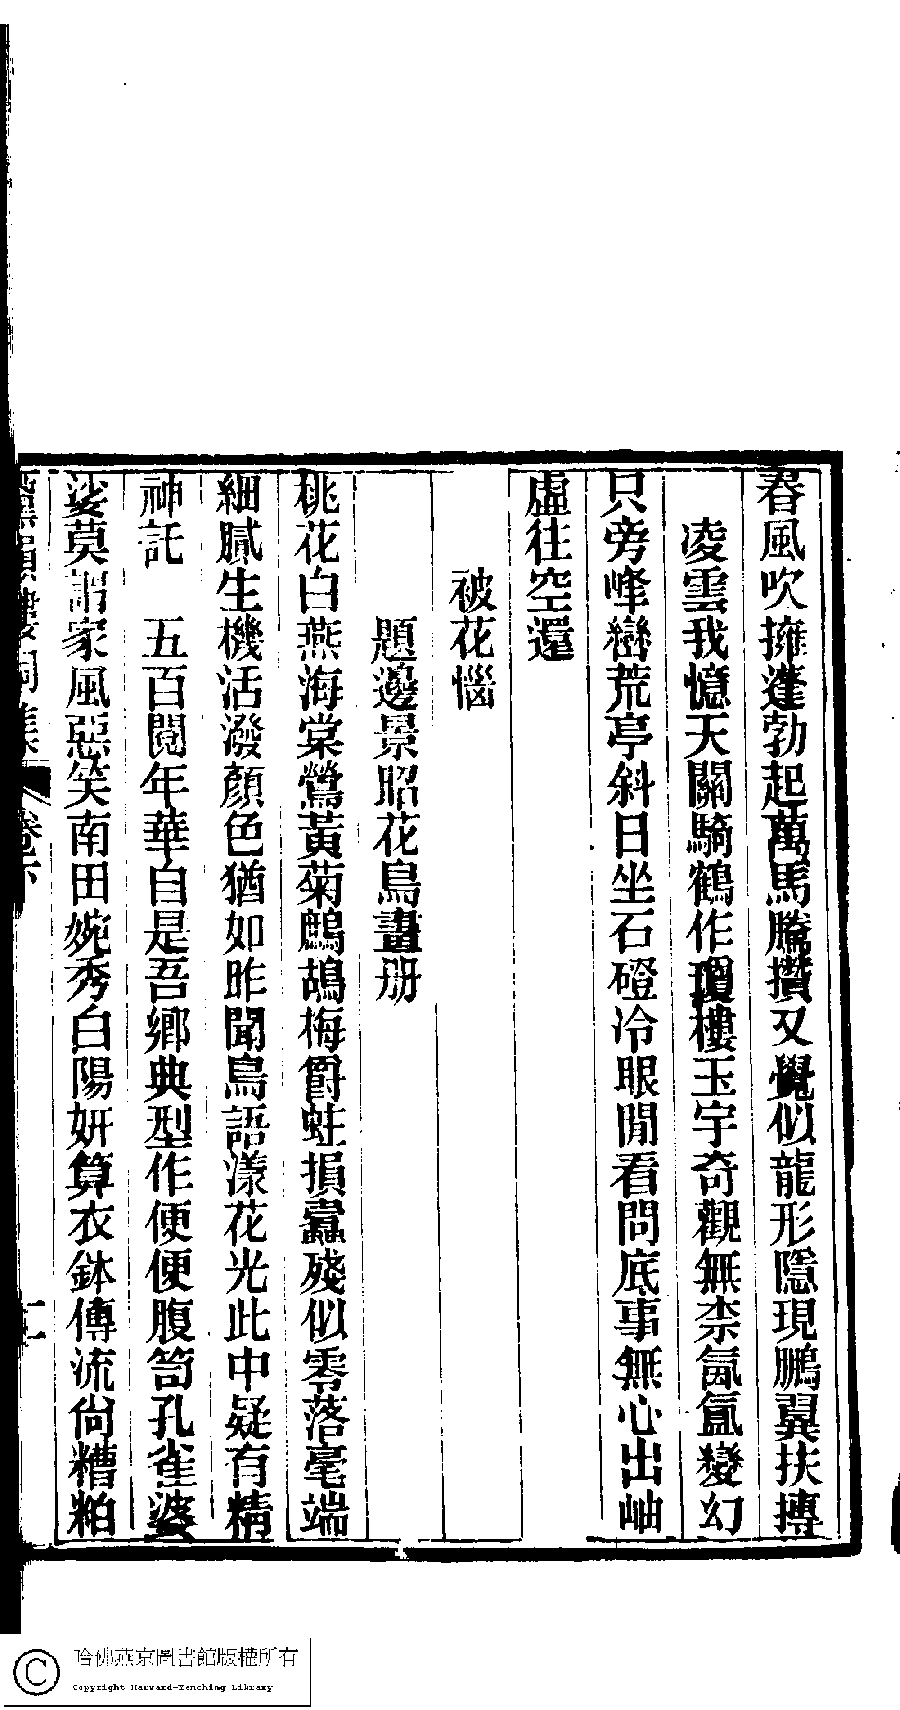 春風吹擁蓬勃起萬馬騰攢又覺似龍形隱現鵬翼扶摶
凌雲我憶天關騎鶴作瓊樓玉宇奇觀無柰氤氳變幻
只旁峰巒荒亭斜日坐石磴冷眼閒看問底事無心出岫
虛往空還
被花惱
題邊景昭花鳥畫册
桃花白燕海棠鶯黃菊鷓鴣梅爵蛀損蠹殘似零落毫端
細膩生機活潑顏色猶如昨聞鳥語漾花光此中疑有精
神託　五百閱年華自是吾鄉典型作便便腹笥孔雀婆
娑莫謂家風惡笑南田婉秀白陽妍算衣鉢傳流尙糟粕
詞集
卷下
哈佛燕京圖書館版權所有
Copyright Harvard-Yenching Library